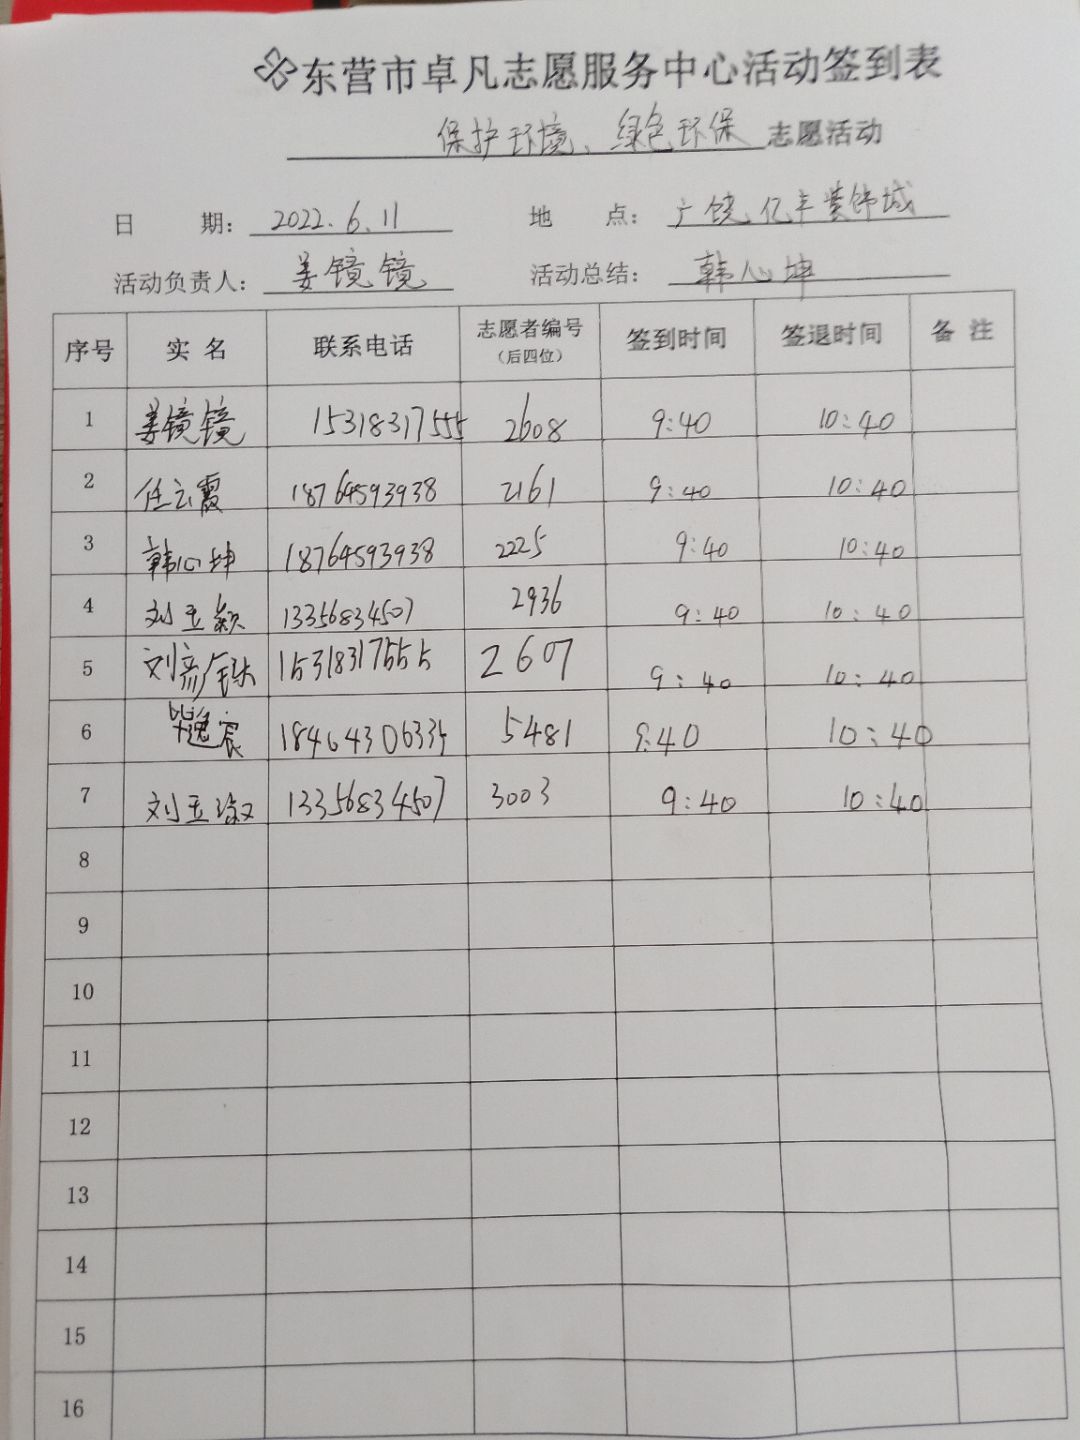 东营市卓凡志愿服务中心活动签到表
保护环境、绿色环保 志愿活动
日 期： 2022.6.11 地 点： 广饶亿丰装饰城
活动负责人： 姜镜镜 活动总结： 韩心坤
序号 实 名 联系电话 志愿者编号（后四位） 签到时间 签退时间 备 注
1 姜镜镜 15318317555 2608 9:40 10:40
2 任云霞 18764593938 2161 9:40 10:40
3 韩心坤 18764593938 2225 9:40 10:40
4 刘玉颖 13356834507 2936 9:40 10:40
5 刘彦 15318317555 2607 9:40 10:40
6 毕逸宸 18464306335 5481 9:40 10:40
7 刘玉淑 13356834507 3003 9:40 10:40
8
9
10
11
12
13
14
15
16